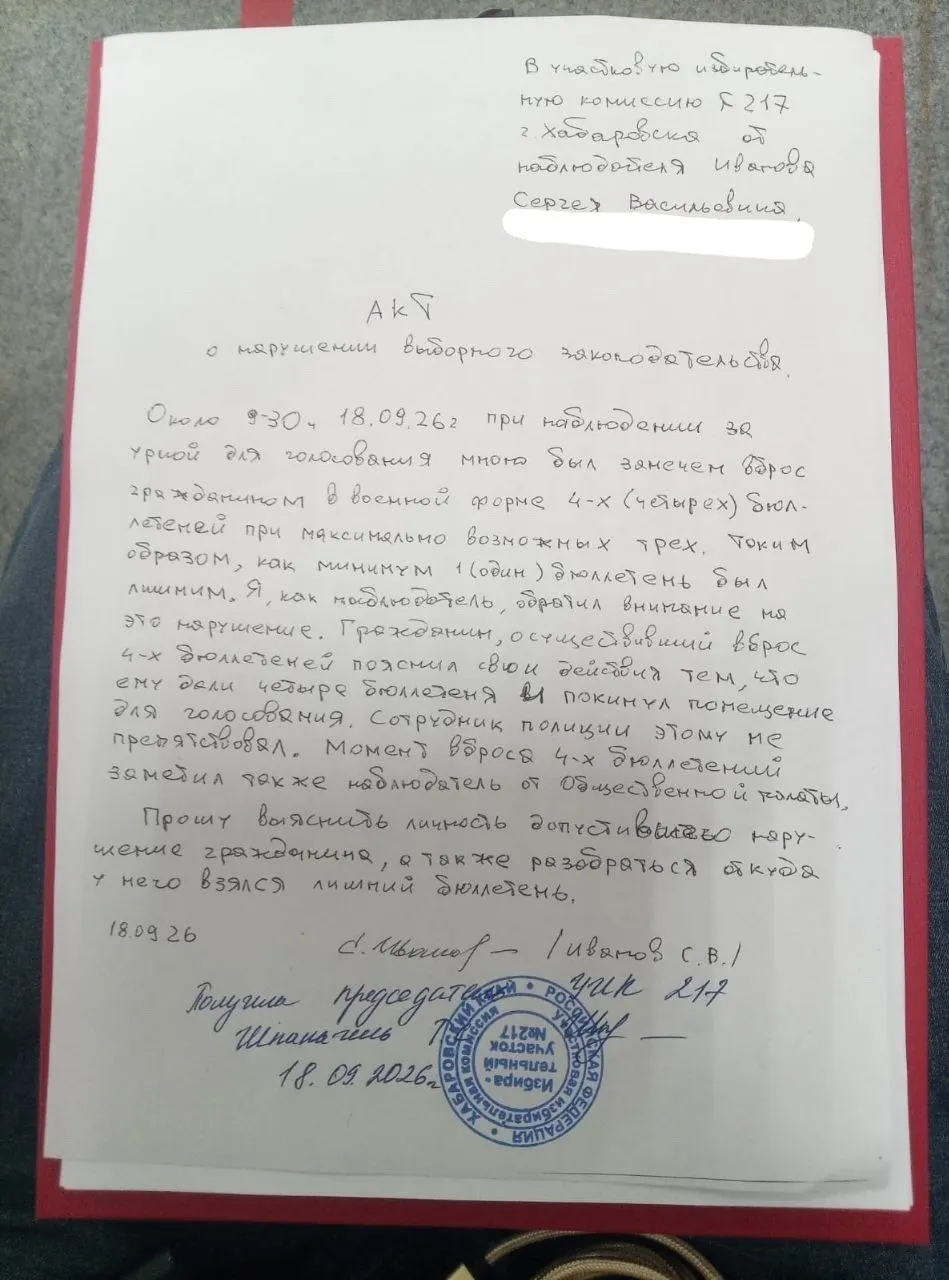 В участковую избиратель-
ную комиссию № 217
г. Хабаровска от
наблюдателя Иванова
Сергея Васильевича,
АКТ
о нарушении выборного законодательства.
Около 9-30 ч 18.09.26г при наблюдении за
урной для голосования мною был замечен вброс
гражданином в военной форме 4-х (четырех) бюл-
летеней при максимально возможных трех. Таким
образом, как минимум 1 (один) бюллетень был
лишним. Я, как наблюдатель, обратил внимание на
это нарушение. Гражданин, осуществивший вброс
4-х бюллетеней пояснил свои действия тем, что
ему дали четыре бюллетеня и покинул помещение
для голосования. Сотрудник полиции этому не
препятствовал. Момент вброса 4-х бюллетений
заметил также наблюдатель от Общественной палаты.
Прошу выяснить личность допустившего нару-
шение гражданина, а также разобраться откуда
у него взялся лишний бюллетень.
18.09.26
С. Иванов /Иванов С.В./
Получила председатель УИК 217
18.09.2026г
РОССИЙСКАЯ ФЕДЕРАЦИЯ • ХАБАРОВСКИЙ КРАЙ •
Участковая избирательная комиссия
Избира-
тельный
участок
№217